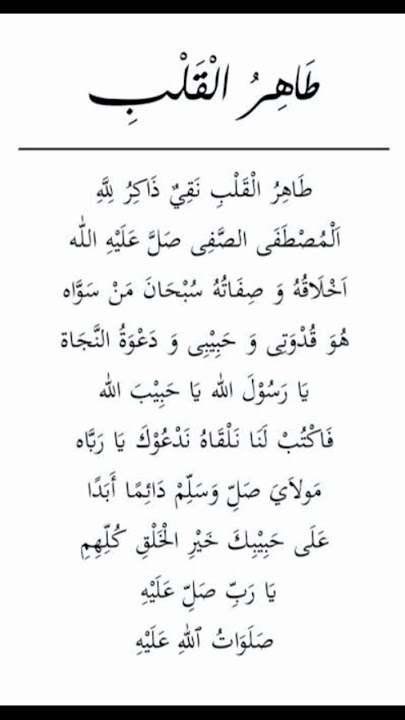 طَاهِرُ الْقَلْبِ
طَاهِرُ الْقَلْبِ نَقِيٌ ذَاكِرُ لِلَّهِ
اَلْمُصْطَفَى الصَّفِى صَلَّ عَلَيْهِ الله
اَخْلَاقُهُ وَ صِفَاتُهُ سُبْحَانَ مَنْ سَوَّاه
هُوَ قُدْوَتِى وَ حَبِيْبِى وَ دَعْوَةُ النَّجَاة
يَا رَسُوْلَ الله يَا حَبِيْبَ الله
فَاكْتُبْ لَنَا نَلْقَاهُ نَدْعُوْكَ يَا رَبَّاه
مَولاَيَ صَلِّ وَسَلِّمْ دَائِمًا أَبَدًا
عَلَى حَبِيْبِكَ خَيْرِ الْخَلْقِ كُلِّهِمِ
يَا رَبِّ صَلِّ عَلَيْهِ
صَلَوَاتُ ٱللهِ عَلَيْهِ